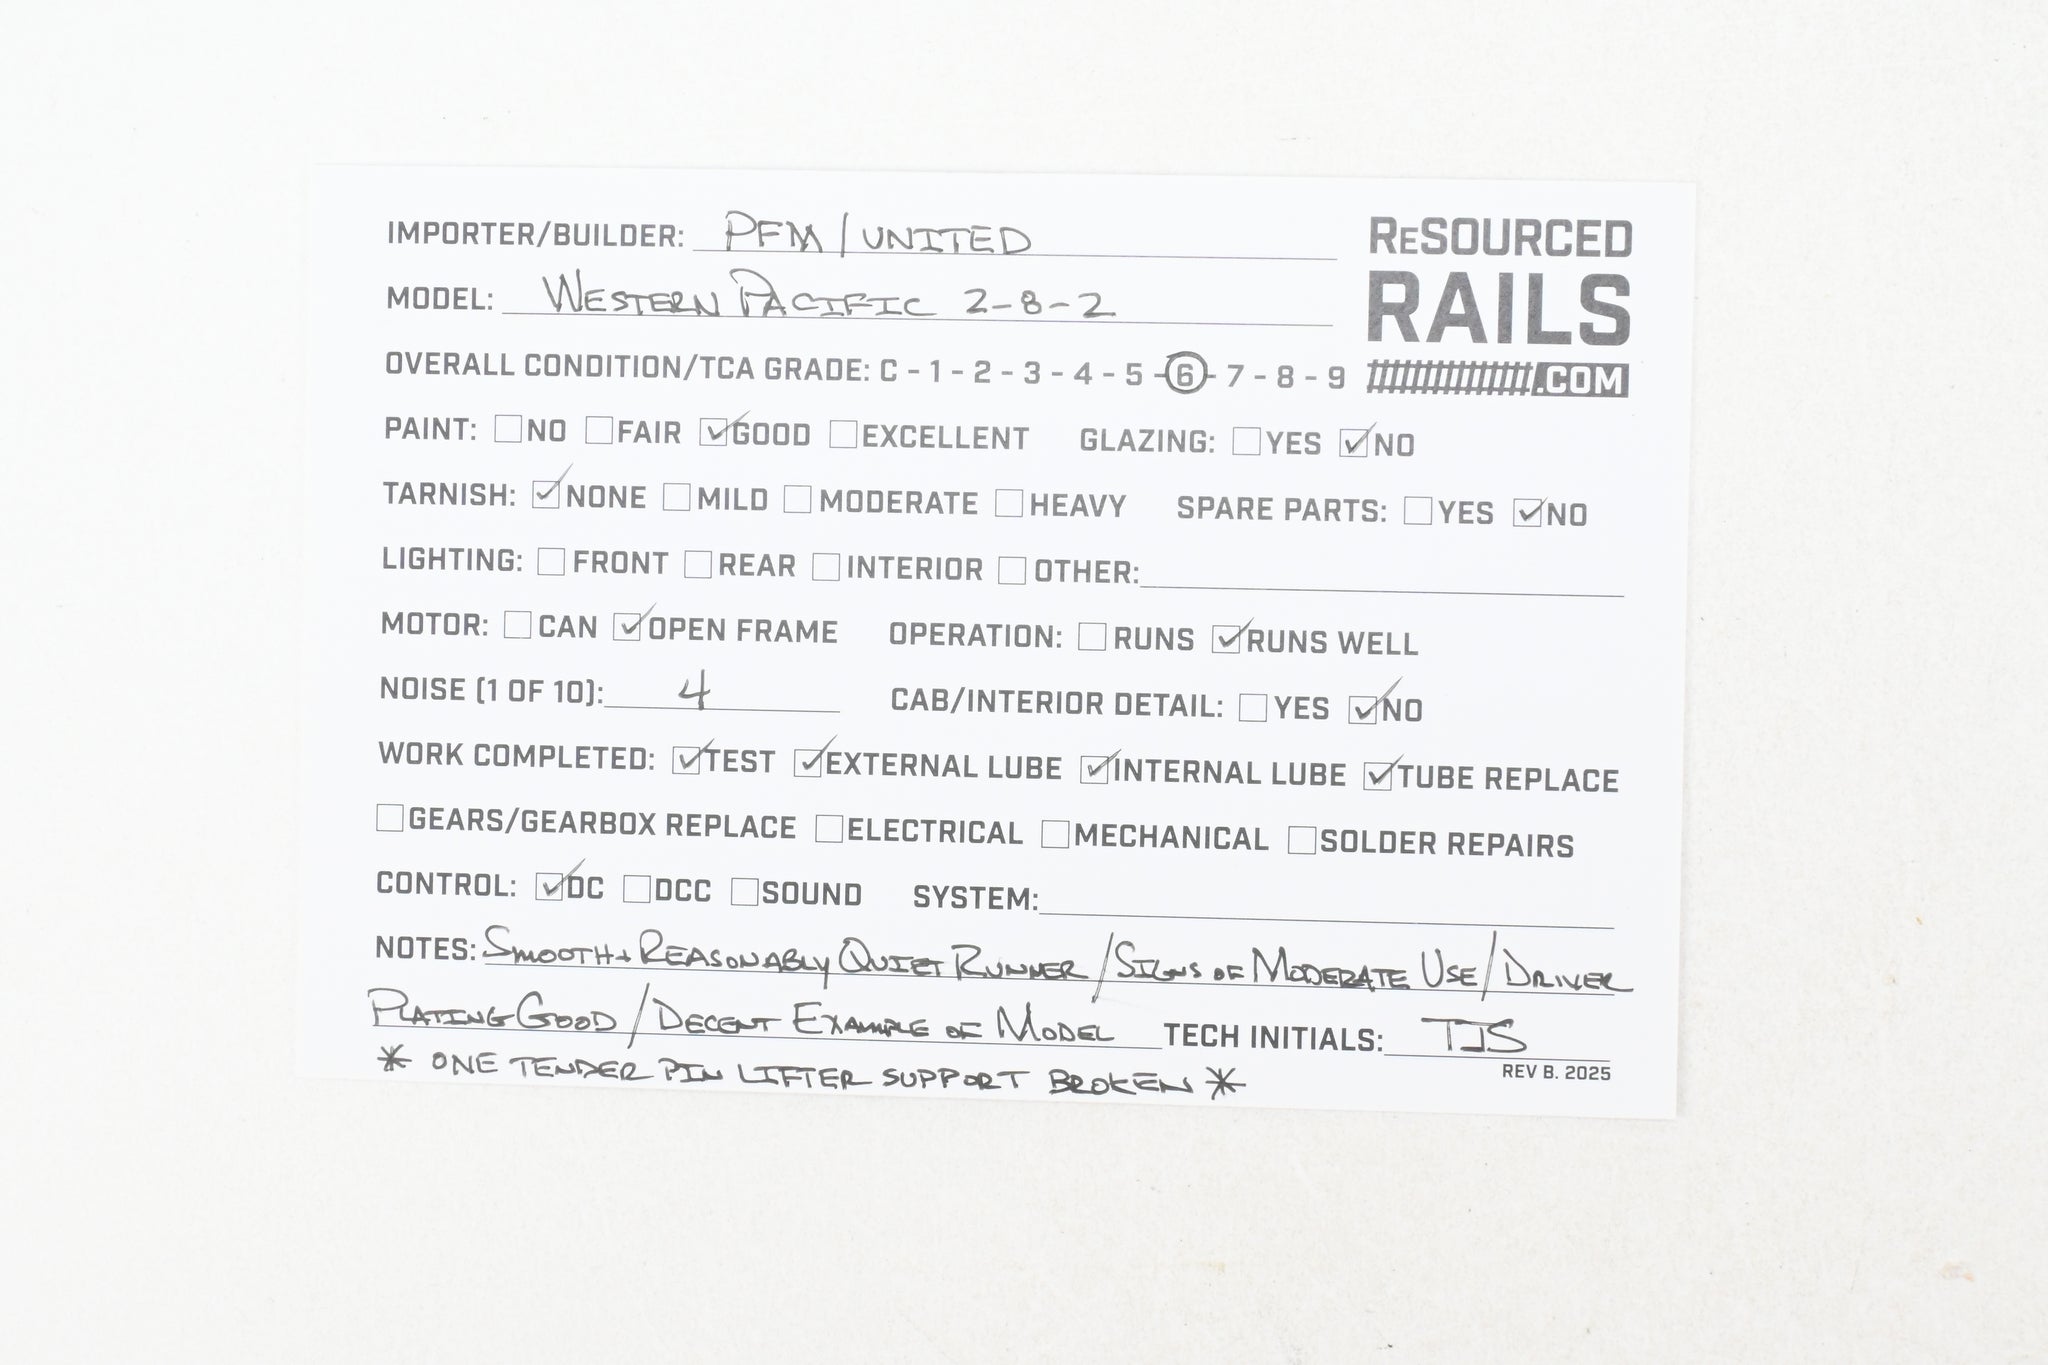 IMPORTER/BUILDER: PFM/UNITED
ReSOURCED
RAILS
.COM
MODEL: WESTERN PACIFIC 2-8-2
OVERALL CONDITION/TCA GRADE: C - 1 - 2 - 3 - 4 - 5 - 6 - 7 - 8 - 9
PAINT: ☐NO ☐FAIR ☑GOOD ☐EXCELLENT GLAZING: ☐YES ☑NO
TARNISH: ☑NONE ☐MILD ☐MODERATE ☐HEAVY SPARE PARTS: ☐YES ☑NO
LIGHTING: ☐FRONT ☐REAR ☐INTERIOR ☐OTHER:
MOTOR: ☐CAN ☑OPEN FRAME OPERATION: ☐RUNS ☑RUNS WELL
NOISE (1 OF 10): 4 CAB/INTERIOR DETAIL: ☐YES ☑NO
WORK COMPLETED: ☑TEST ☑EXTERNAL LUBE ☑INTERNAL LUBE ☑TUBE REPLACE
☐GEARS/GEARBOX REPLACE ☐ELECTRICAL ☐MECHANICAL ☐SOLDER REPAIRS
CONTROL: ☑DC ☐DCC ☐SOUND SYSTEM:
NOTES: SMOOTH + REASONABLY QUIET RUNNER / SIGNS OF MODERATE USE / DRIVER
PLATING GOOD / DECENT EXAMPLE OF MODEL TECH INITIALS: TJS
* ONE TENDER PIN LIFTER SUPPORT BROKEN *
REV B. 2025